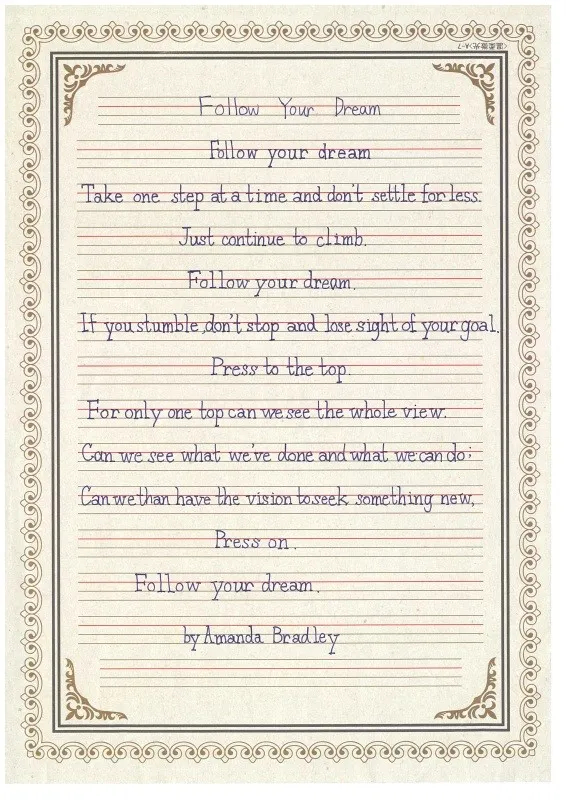 《温柔微光》A-7
Follow Your Dream
Follow your dream
Take one step at a time and don't settle for less.
Just continue to climb.
Follow your dream.
If you stumble, don't stop and lose sight of your goal.
Press to the top.
For only one top can we see the whole view.
Can we see what we've done and what we can do;
Can we than have the vision to seek something new,
Press on.
Follow your dream.
by Amanda Bradley